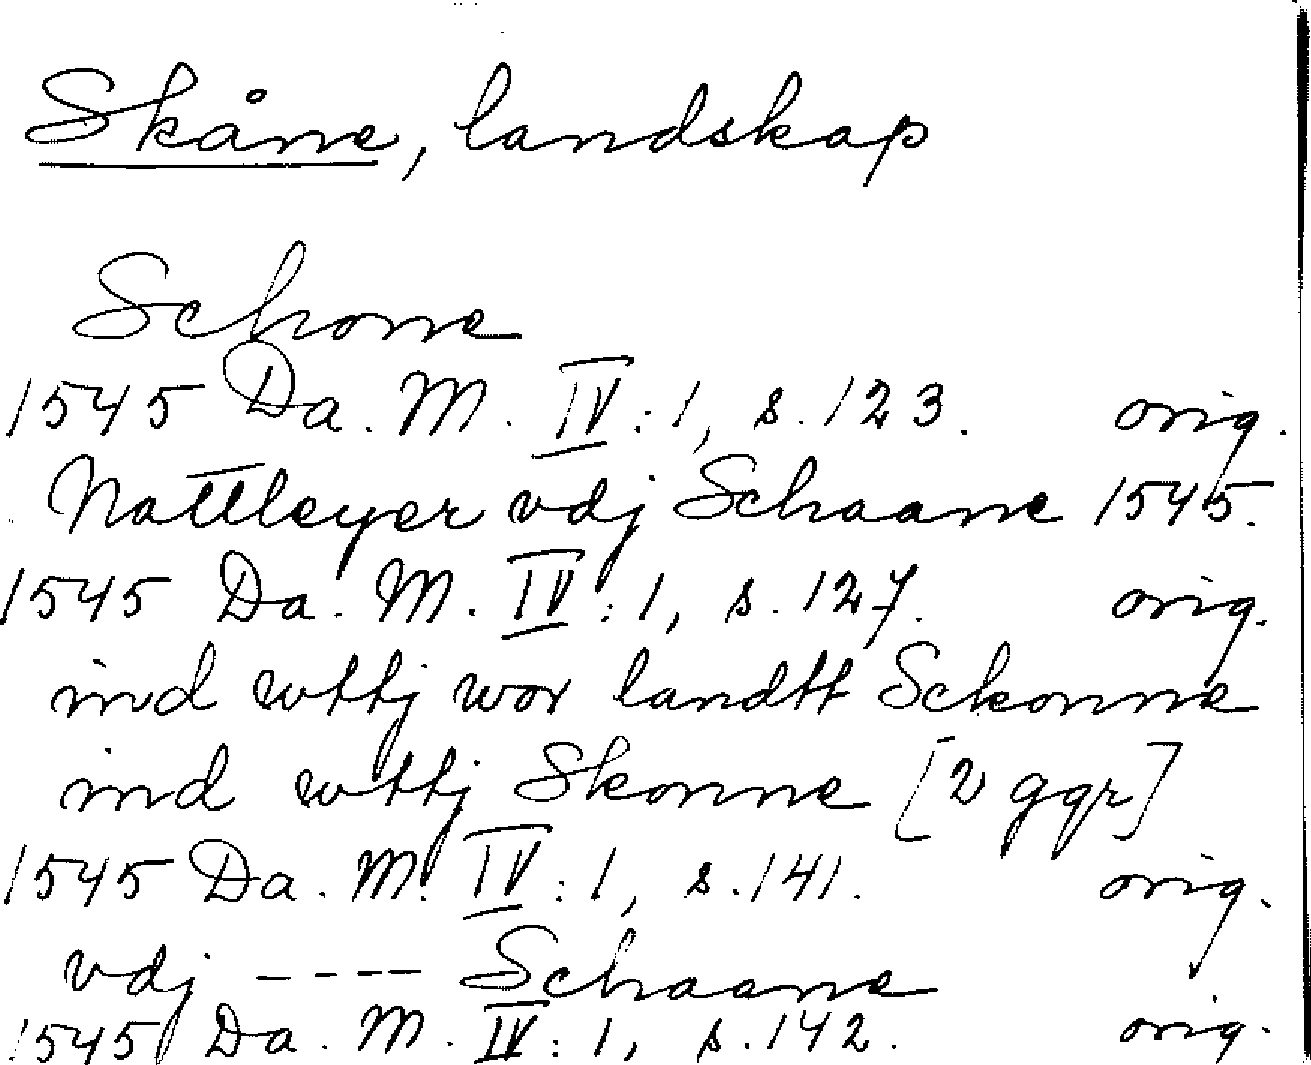 Skåne, landskap
Schone
1545 Da. M. IV:1, s. 123. orig.
Nattleyer vdj Schaane 1545.
1545 Da. M. IV:1, s. 127. orig.
ind wttj wor landtt Skonne
ind wttj Skonne [2 ggr]
1545 Da. M. IV:1, s. 141. orig.
vdj ---- Schaane
1545 Da. M. IV:1, s. 142. orig.